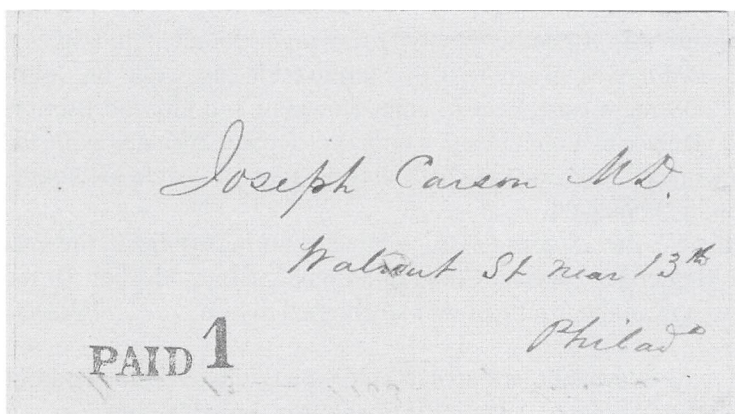 Joseph Carson MD.
Walnut St near 13th
Philada
PAID 1